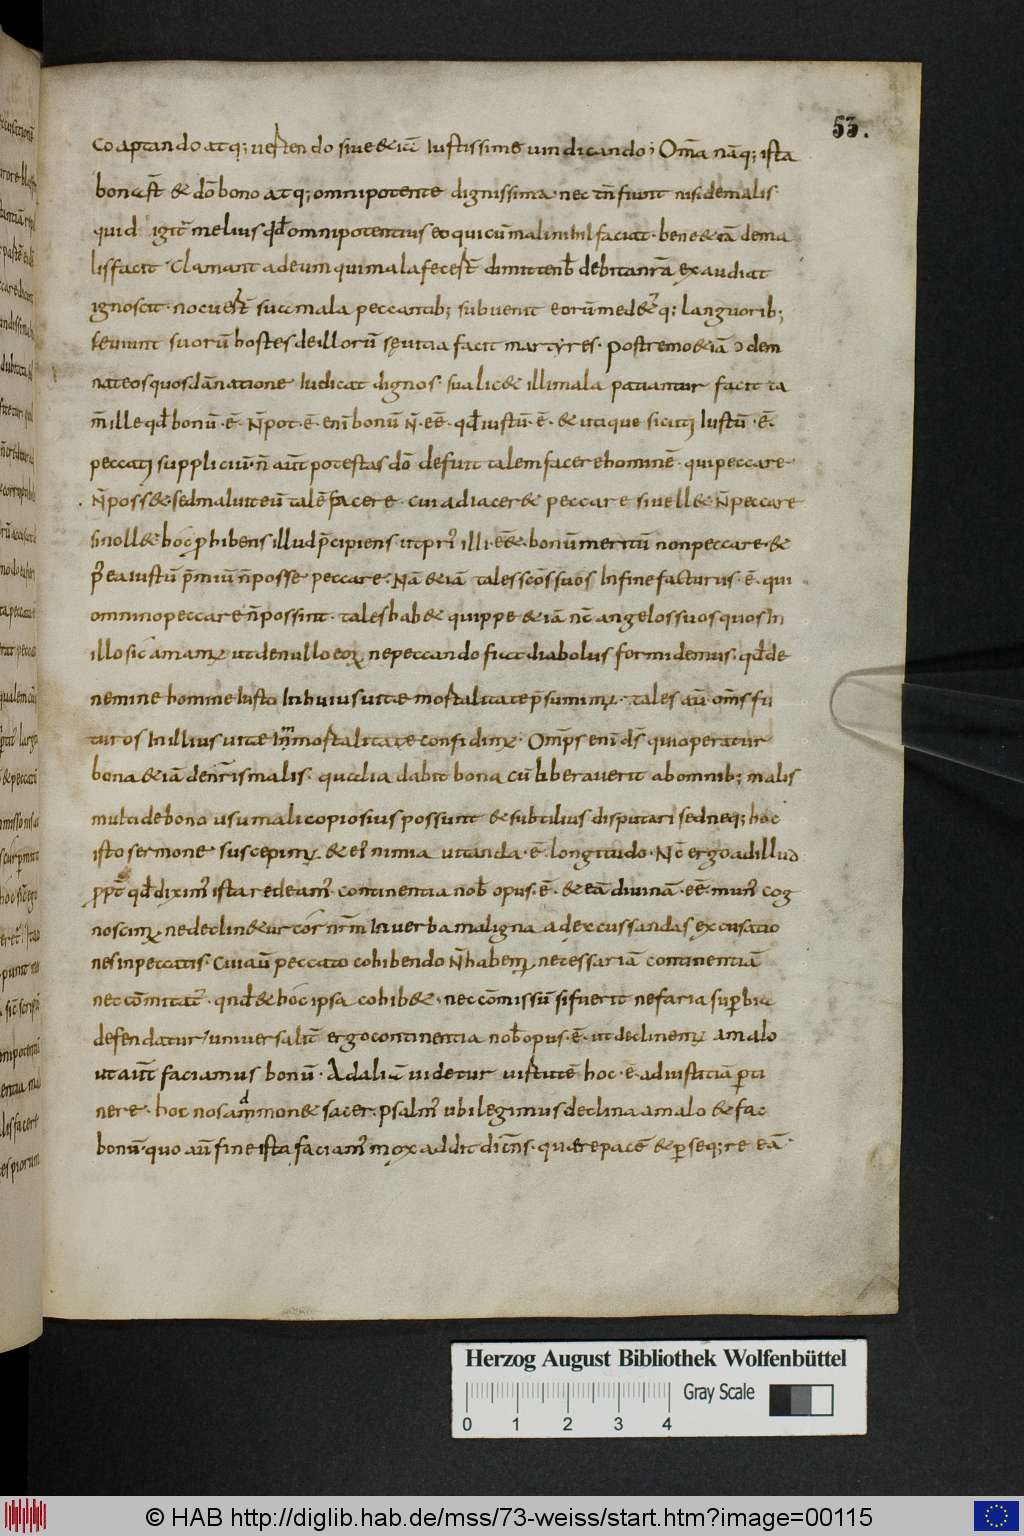 53.
coaptando atq; uertendo siue & iā Iustissime uindicando; Om̄a nāq; ista
bona st̄ & dō bono atq; omnipotente dignissima. nec tn̄ fiunt nisi de malis.
quid igit̄ melius qđ omnipotentius eo qui cū mali nihil faciat. bene &iā de ma
lis facit. Clamant ad eum qui mala fecer̄t dimitte nob̄ debita nr̄a exaudiat
ignoscit. nocuer̄t sua mala peccantib; subuenit eorū med&ur q; languorib;
seuiunt suorū hostes de illorū sęuitia facit martyres. postremo &iā ɔdem
nat eos quos dānatione Iudicat dignos. sua lic& illi mala patiantur facit ta
m̄ ille qđ bonū. ē. N̄ pot. ē. enī bonū n̄. eē. qđ iustū. ē. & utique sicuti Iustū. ē.
peccati suppliciū. n̄ aūt potestas dō defuit talem facere hominē. qui peccare
N̄ poss&. sed maluit eū talē facere. cui adiacer& peccare si uell& N̄ peccare
si noll& hoc phibens illud p̄cipiens ut pr̓ illi. eē&. bonū meritū non peccare. &
p̓ ea iustū p̄miū n̄ posse peccare. Nā &iā tales sc̄os suos In fine facturus. ē. qui
omnino peccare n̄ possint. tales hab& quippe &iā nc̄ angelos suos quos In
illo sic amam; ut de nullo eoꝝ ne peccando fiat diabolus formidemus. qđ de
nemine homine Iusto In huius uite mortalitate p̄sumim;. tales aū. om̄s fu
turos In illius uite Inmortalitate confidim;. Om̄ps enī ds̄ qui operatur
bona &iā de nr̄is malis. qualia dabit bona cū liberauerit ab omnib; malis
multa de bono usu mali copiosius possunt & subtilius disputari sed neq; hoc
isto sermone suscepim; & ei̓ nimia uitanda. ē. longitudo. Nc̄ ergo ad illud
ppt̄ qđ dixim̓ ista redeam̓. continentia nob̄ opus. ē. & eā diuinā. eē. mun̓ cog
noscim; ne declin&ur cor nr̄m In uerba maligna ad excussandas excusatio
nes in peccatis. Cui aū peccato cohibendo N̄ habem; necessariā continentiā
nec comitat̓. qn̄d & hoc ipsa cohib&. nec cōmissū si fuerit nefaria supbia
defendatur. uniuersalit̓ ergo continentia nob̄ opus. ē. ut declinem; a malo
ut aūt faciamus bonū. Ad aliā uidetur uirtutē hoc. ē. ad iustitiā pti
nere. hoc nos ammon& sacer. psalm̓ ubi legimus declina a malo & fac
bonū. quo aū fine ista faciam̓ mox addit dicēns. quere pacē & pseq;re eā.
Herzog August Bibliothek Wolfenbüttel
Gray Scale
0 1 2 3 4
© HAB http://diglib.hab.de/mss/73-weiss/start.htm?image=00115